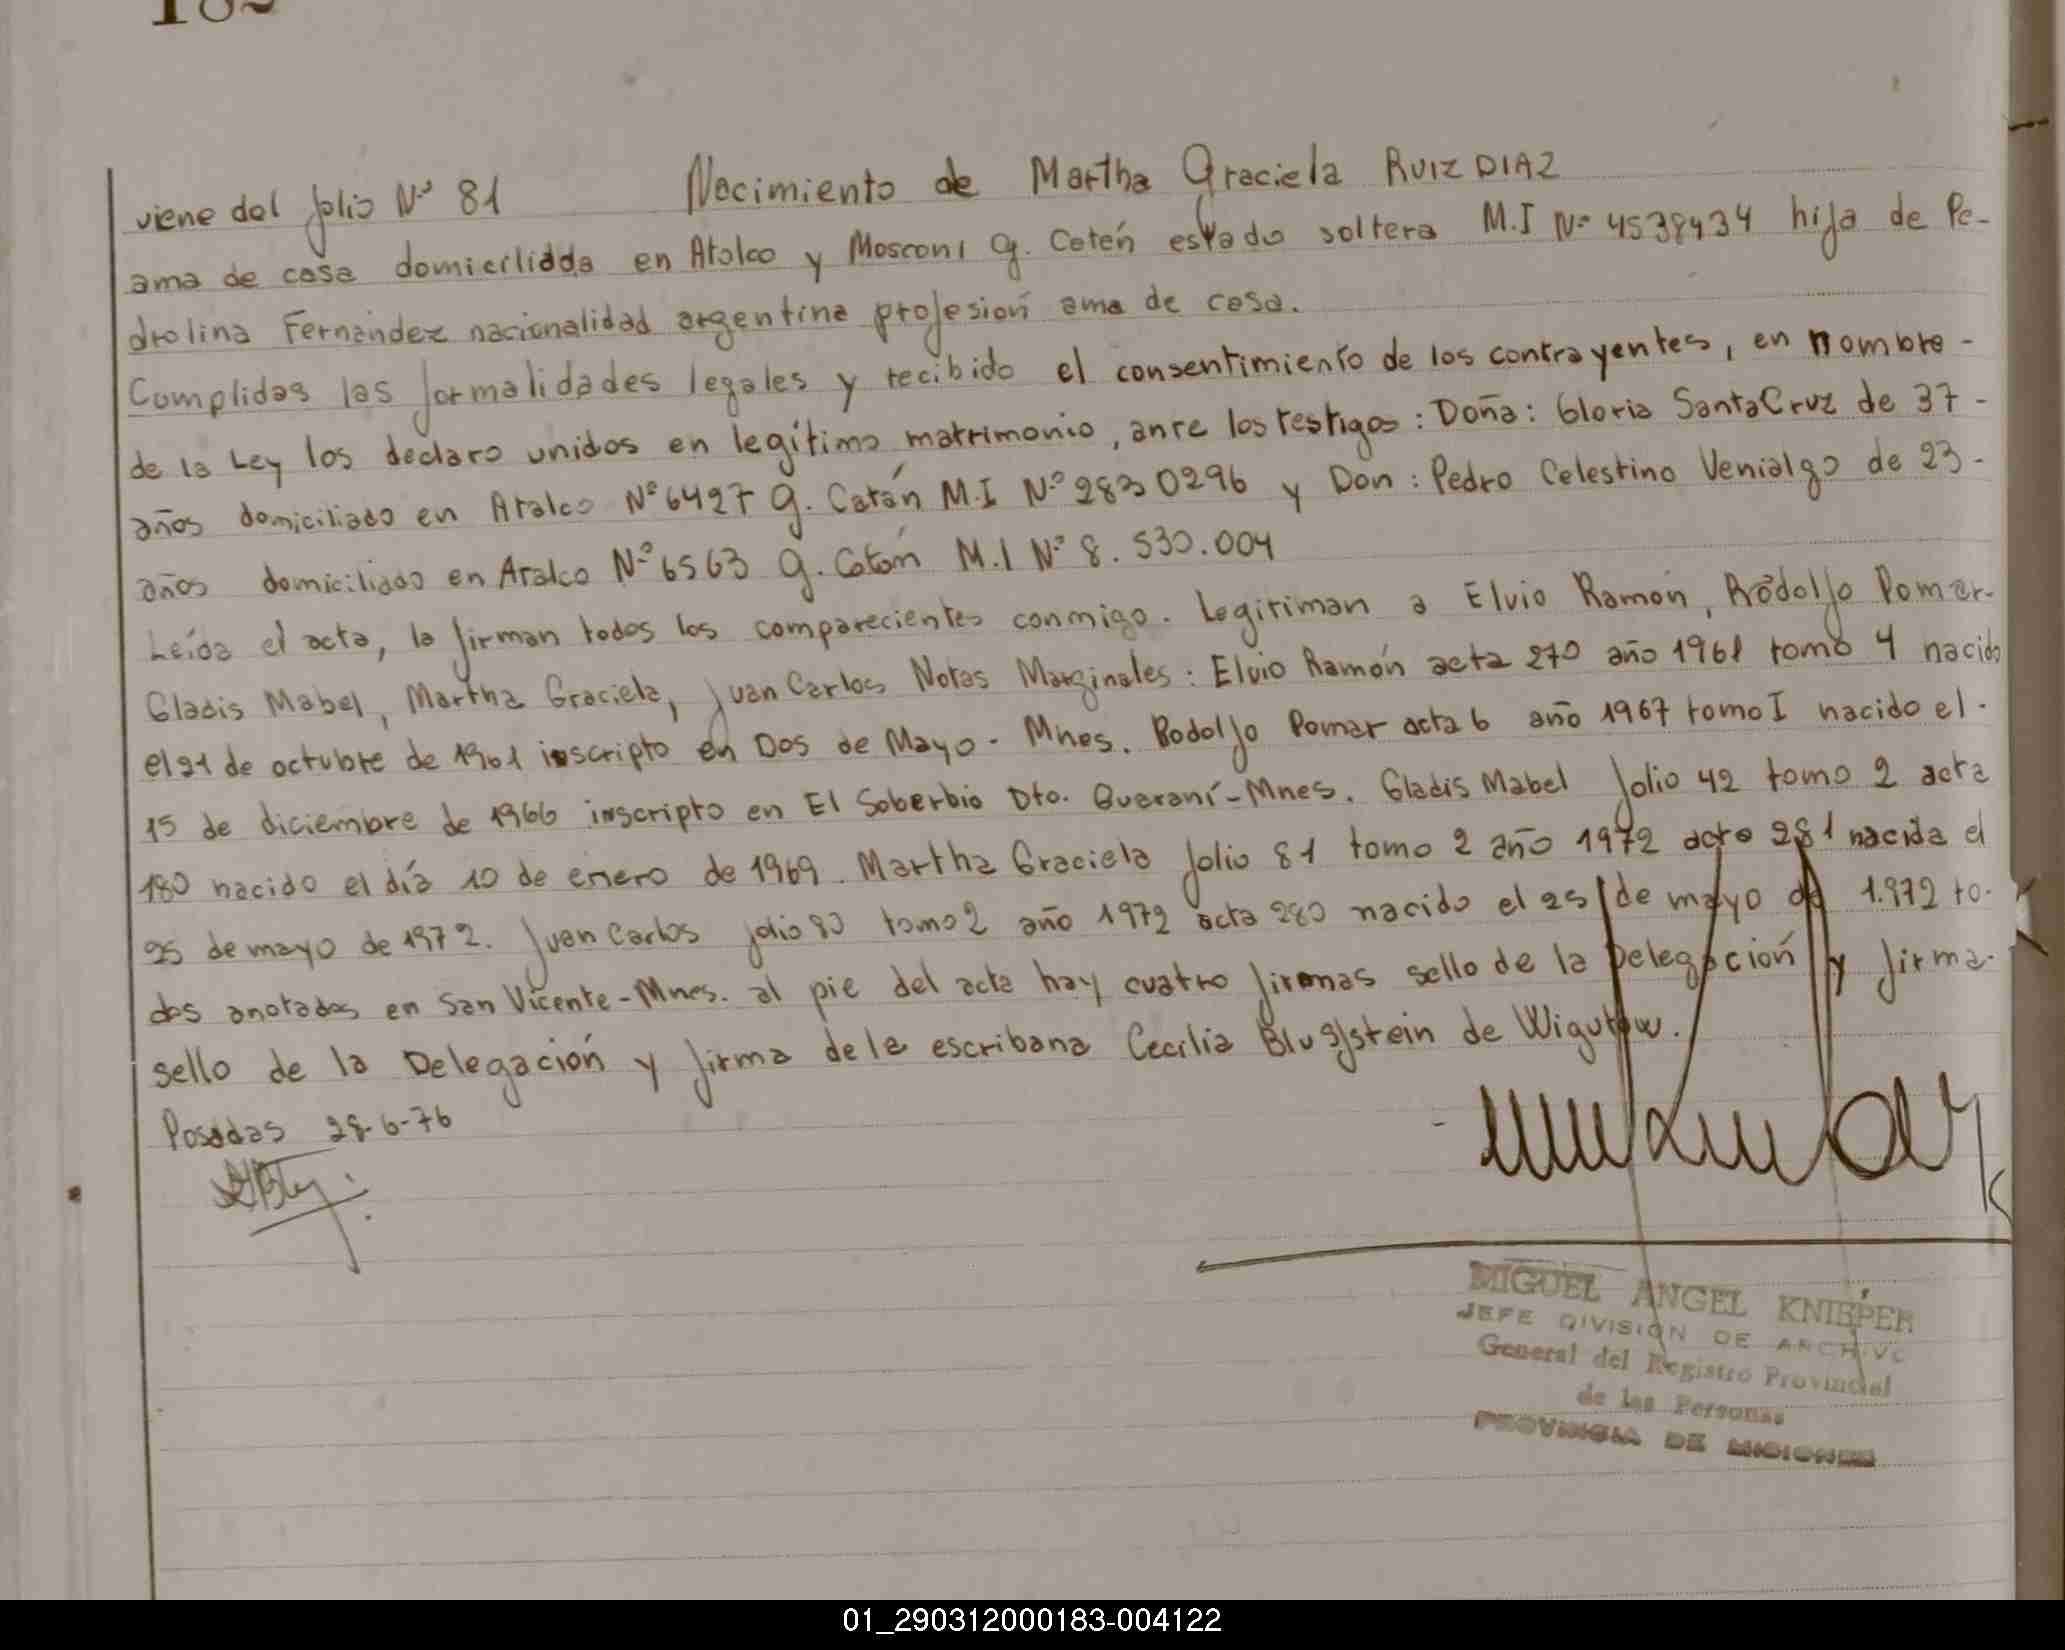 182
viene del folio Nº 81 Nacimiento de Martha Graciela RUIZ DIAZ
ama de casa domicilidda en Atalco y Mosconi G. Catán estado soltera M.I Nº 4538434 hija de Pe-
drolina Fernández nacionalidad argentina profesión ama de casa.
Cumplidas las formalidades legales y recibido el consentimiento de los contrayentes, en nombre -
de la Ley los declaro unidos en legítimo matrimonio, ante los testigos: Doña: Gloria SantaCruz de 37 -
años domiciliado en Aralco Nº 6427 G. Catán M.I Nº 2830296 y Don: Pedro Celestino Venialgo de 23-
años domiciliado en Aralco Nº 6563 G. Catán M.I Nº 8.530.004
Leída el acta, la firman todos los comparecientes conmigo. Legitiman a Elvio Ramón, Rodolfo Pomar-
Gladis Mabel, Martha Graciela, Juan Carlos Notas Marginales: Elvio Ramón acta 270 año 1961 tomo 4 nacido
el 21 de octubre de 1961 inscripto en Dos de Mayo - Mnes. Rodolfo Pomar acta 6 año 1967 tomo I nacido el.
15 de diciembre de 1966 inscripto en El Soberbio Dto. Guaraní-Mnes. Gladis Mabel folio 42 tomo 2 acta
180 nacido el día 10 de enero de 1969. Martha Graciela folio 81 tomo 2 año 1972 acta 281 nacida el
25 de mayo de 1972. Juan Carlos folio 80 tomo 2 año 1972 acta 280 nacido el 25 de mayo de 1.972 to-
dos anotados en San Vicente-Mnes. al pie del acta hay cuatro firmas sello de la Delegación y firma-
sello de la Delegación y firma de la escribana Cecilia Blugstein de Wigutow.
Posadas 28-6-76
MIGUEL ANGEL KNIEPER
JEFE DIVISION DE ARCHIVO
General del Registro Provincial
de las Personas
PROVINCIA DE MISIONES
01_290312000183-004122